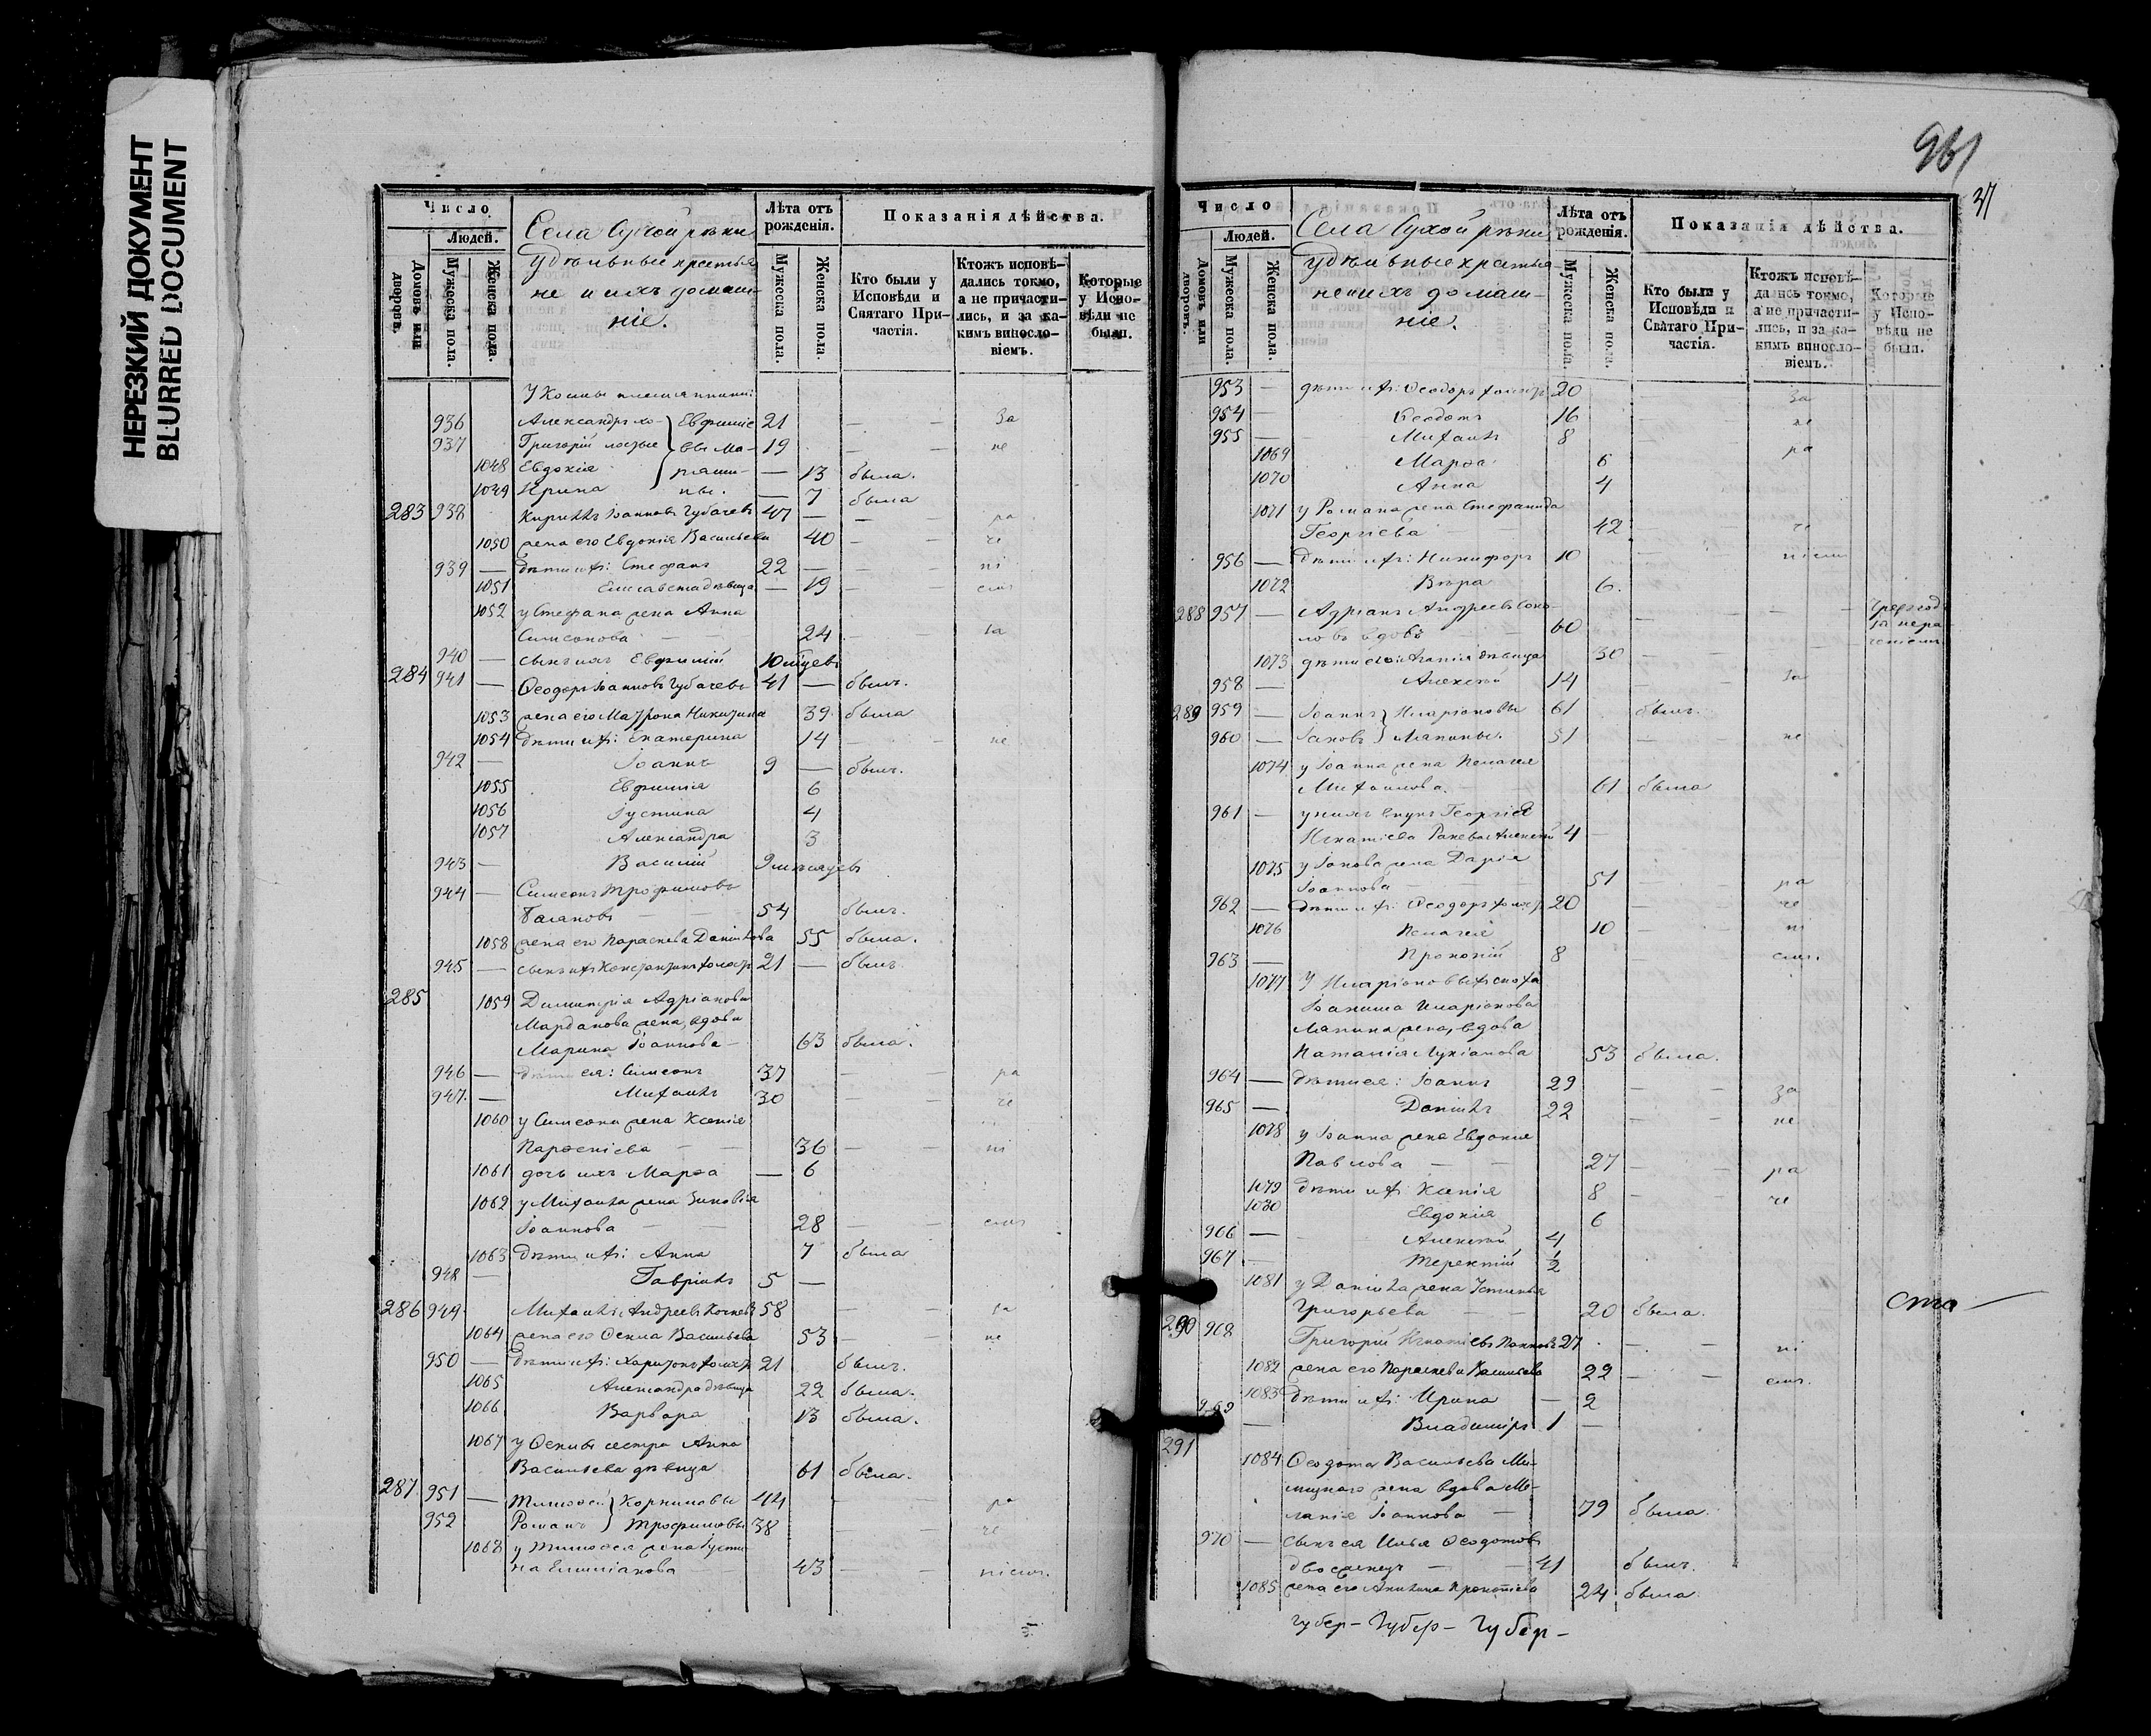 НЕРЕЗКИЙ ДОКУМЕНТ
BLURRED DOCUMENT
Число
Людей.
Домовъ или дворовъ.
Мужеска пола.
Женска пола.
Села Сухой рѣки
Удѣльные крестья
не и ихъ домаш-
ніе.
Лѣта отъ рожденія.
Мужеска пола.
Женска пола.
Показанія дѣйства.
Кто были у Исповѣди и Святаго При-частія.
Ктожъ исповѣ-дались токмо, а не причасти-лись, и за ка-кимъ винословіемъ.
Которые у Испо-вѣди не были.
У Козмы племянники:
936 Александръ хо- Евфиміе 21 — — за
937 Григорій лостые вы Ма- 19 — — не
1048 Евдокія — 13 была.
1049 Ирина ны. — 7 была
283 938 Кириллъ Іоанновъ Губачевъ 47 — — — ра
1050 жена его Евдокія Васильева 40 — — че
939 — дѣти ихъ: Стефанъ 22 — — — ні
1051 Елисавета дѣвица — 19 — — емъ
1052 у Стефана жена Анна
Симеонова — — 24 — — за
940 — сынъ ихъ Евфимій
284 941 — Ѳеодоръ Іоанновъ Губачевъ 41 — былъ.
1053 жена его Матрона Никитина 39 была
1054 дѣти ихъ: Екатерина 14 — — не
942 — Іоаннъ 9 — былъ.
1055 Евфимія 6
1056 Іустина 4
1057 Александра 3
943 — Василій 9 мѣсяцевъ
944 — Симеонъ Трофимовъ
— — 54 былъ.
1058 жена его Параскева Даніилова 55 была.
945 — сынъ ихъ Константинъ холост 21 — былъ
285 1059 Димитрія Адріанова
Марданова жена, вдова
Марина Іоаннова — 63 была.
946 — дѣти ея: Симеонъ 37 — — ра
947. — Михаилъ 30 — — че
1060 у Симеона жена Ксенія
— — 36 — — ні
1061 дочь ихъ Марѳа — 6
1062 у Михаила жена Зиновія
Іоаннова — — 28 — — емъ
1063 дѣти ихъ: Анна 7 была
948 — Гавріилъ 5 —
286 949 Михаилъ Андреевъ 58 — — за
1064 жена его Ѳекла Васильева 53 — — не
950 — дѣти ихъ: Харитонъ холост 21 былъ.
1065 Александра дѣвица 22 была.
1066 Варвара 13 была.
1067 у Ѳеклы сестра Анна
Васильева дѣвица 61 была.
287 951 — Тимоѳей Корниловы 44 — — ра
952 Романъ Трофимовы 38 — — че
1068 у Тимоѳея жена Іусти
на Емиліанова — — 43 — — ніемъ.
961
37
Число
Людей.
Домовъ или дворовъ.
Мужеска пола.
Женска пола.
Села Сухой рѣки
Удѣльные крестья
не и ихъ домаш-
ніе.
Лѣта отъ рожденія.
Мужеска пола.
Женска пола.
Показанія дѣйства.
Кто были у Исповѣди и Святаго При-частія.
Ктожъ исповѣ-дались токмо, а не причасти-лись, и за ка-кимъ винословіемъ.
Которые у Испо-вѣди не были.
953 — дѣти ихъ: Ѳеодоръ холост 20 — — за
954 — Ѳеодотъ 16 — — не
955 — Михаилъ 8
1069 Марѳа 6 — — ра
1070 Анна 4
1071 у Романа жена Стефанида
Георгіева 42 — — че
956 — дѣти ихъ: Никифоръ 10 — — ніемъ
1072 Вѣра 6.
288 957 — Адріанъ Андреевъ Соко-
ловъ вдовъ — — 60 — — — чрез год
за нера
ченіемъ
1073 дѣти его: Агапія дѣвица 30 —
958 — Алексѣй 14 — — за
289 959 — Іоаннъ Иларіоновы 61 былъ.
960 — Іаковъ Лапины. 51 — — не
1074 у Іоанна жена Пелагея
Михаилова. — 61 была
961 — у нихъ внукъ Георгія
Игнатіева Алексѣй 4 —
1075 у Іакова жена Дарія
Іоаннова — — 51 — — ра
962 — дѣти ихъ: Ѳеодоръ холост 20 — — че
1076 Пелагея 10 — — ні
963 — Прокопій 8 — емъ.
1077 У Иларіоновыхъ сноха
Иларіонова
Лапина жена, вдова
Наталія Лукіанова 53 была.
964 — дѣти ея: Іоаннъ 29 — — за
965 — Даніилъ 22 — — не
1078 у Іоанна жена Евдокія
Павлова — — 27 — — ра
1079 дѣти ихъ: Ксенія 8 — — че
1080 Евдокія 6
966 — Алексѣй 4
967 — Терентій 1/2
1081 у Даніила жена Устинья
Григорьева — — 20 была.
сто —
290 968 Григорій Игнатіевъ 27 — — ні
1082 жена его Параскева Васильева 22 — — емъ.
1083 дѣти ихъ: Ирина — 2
969 — Владиміръ 1 —
291 1084 Ѳеодота Васильева Ми-
жена вдова Ме-
ланія Іоаннова — 79 была.
970 — сынъ ея Илья Ѳеодотовъ
двоеженецъ — — 41 былъ.
1085 жена его Акилина Прокопіева 24 была
Губер — Губер — Губер —